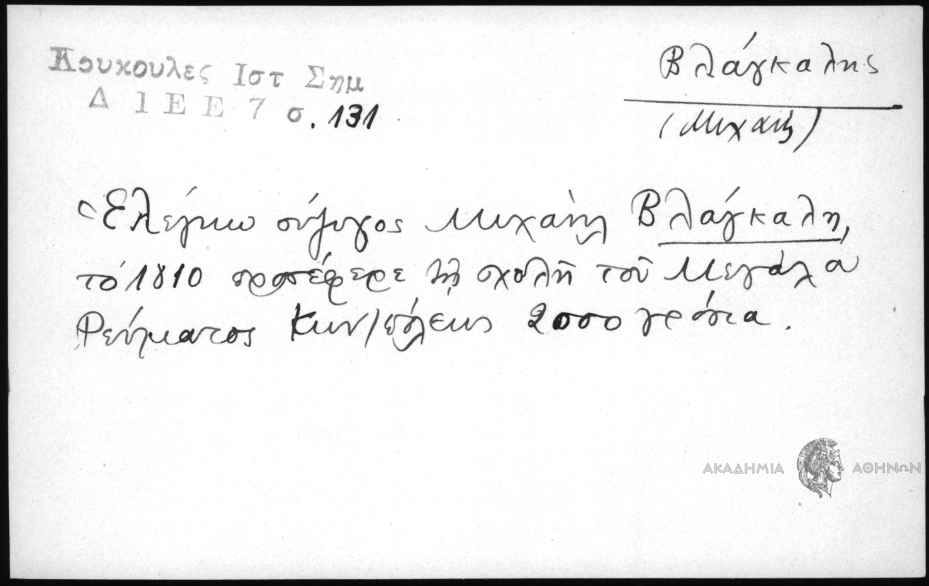 Κουκουλες Ιστ Σημ
Δ 1 Ε Ε 7 σ. 131
Βλάγκαλης
(Μιχαήλ)
Ἑλέγκω σύζυγος Μιχαήλ Βλάγκαλη,
τό 1810 προσέφερε τῇ σχολῇ τοῦ Μεγάλου
Ρεύματος Κων/πόλεως 2000 γρόσια.
ΑΚΑΔΗΜΙΑ ΑΘΗΝΩΝ